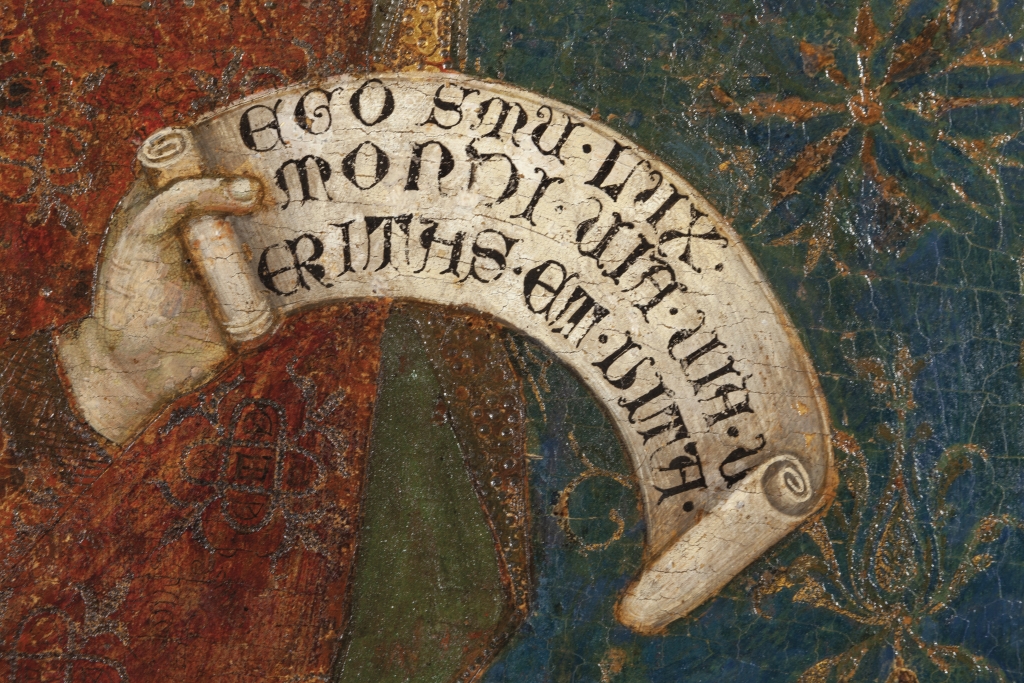 EGO SMU · LUX ·
MONDI · UIA · UIA · U
ERITAS · ET · UITA ·